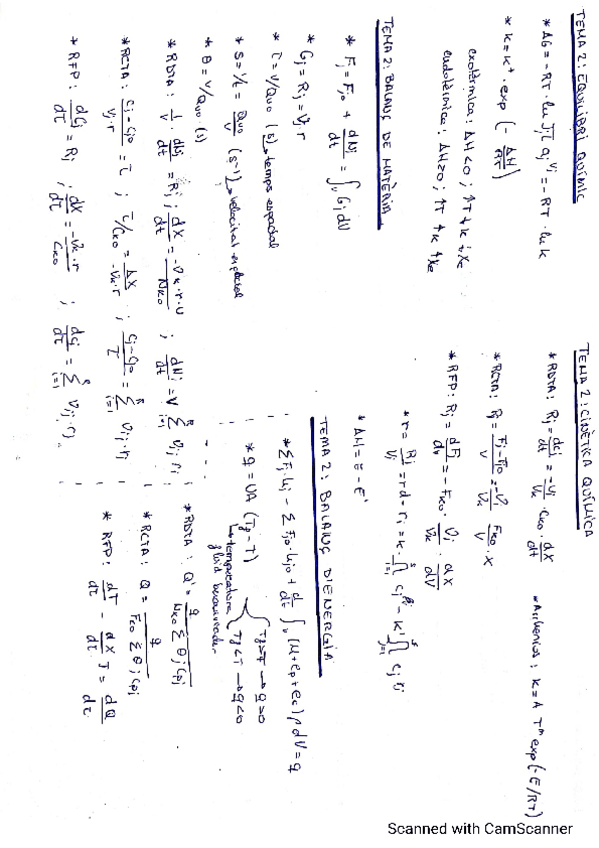 TEMA 2: EQUILIBRI QUÍMIC
* ΔG = -RT · ln ∏ aj^νj = -RT · ln K
* K = K⁺ · exp (- ΔH/RT)
exotèrmica: ΔH<0 ; ↑T ↓K ↓Xe
endotèrmica: ΔH>0 ; ↑T ↑K ↑Xe
TEMA 2: BALANÇ DE MATÈRIA
* Fj = Fjo + dNj/dt = ∫v Gj dV
* Gj = Rj = νj · r
* τ = V/Qvo (s) → temps espacial
* S = 1/τ = Qvo/V (s⁻¹) → velocitat espacial
* θ = V/Qvo (s)
* RDTA: 1/V · dNj/dt = Rj ; dX/dt = -νk·r·V/Nko ; dNj/dt = V Σ i=1 νij · ri
* RCTA: cj - cjo/νj·r = τ ; τ/cko = ΔX/-νk·r ; cj-cjo/τ = Σ i=1 νij · ri
* RFP: dcj/dτ = Rj ; dX/dτ = -νk·r/cko ; dcj/dτ = Σ i=1 νij · ri
TEMA 2: CINÈTICA QUÍMICA
* RDTA: Rj = dcj/dt = -νj/νk · cko · dX/dt
* Arrhenius: k = A T^m exp(-E/RT)
* RCTA: Rj = Fj-Fjo/V = -νj/νk · Fko/V · X
* RFP: Rj = dFj/dV = -Fko · νj/νk · dX/dV
* r = Rj/νj = rd - ri = k · ∏ cj - k' ∏ cj
* ΔH = E - E'
TEMA 2: BALANÇ D'ENERGIA
* Σ Fj · hj - Σ Fjo · hjo + d/dt ∫v (u + ep + ec) ρ dV = q
* q = UA (Tf - T)
Tf<T → q<0
→ temperatura
* RDTA: Q' = q/Nko Σ θj Cpj
* RCTA: Q = q/Fko Σ θj Cpj
* RFP: dT/dτ - dX/dτ J = dQ/dτ
Scanned with CamScanner